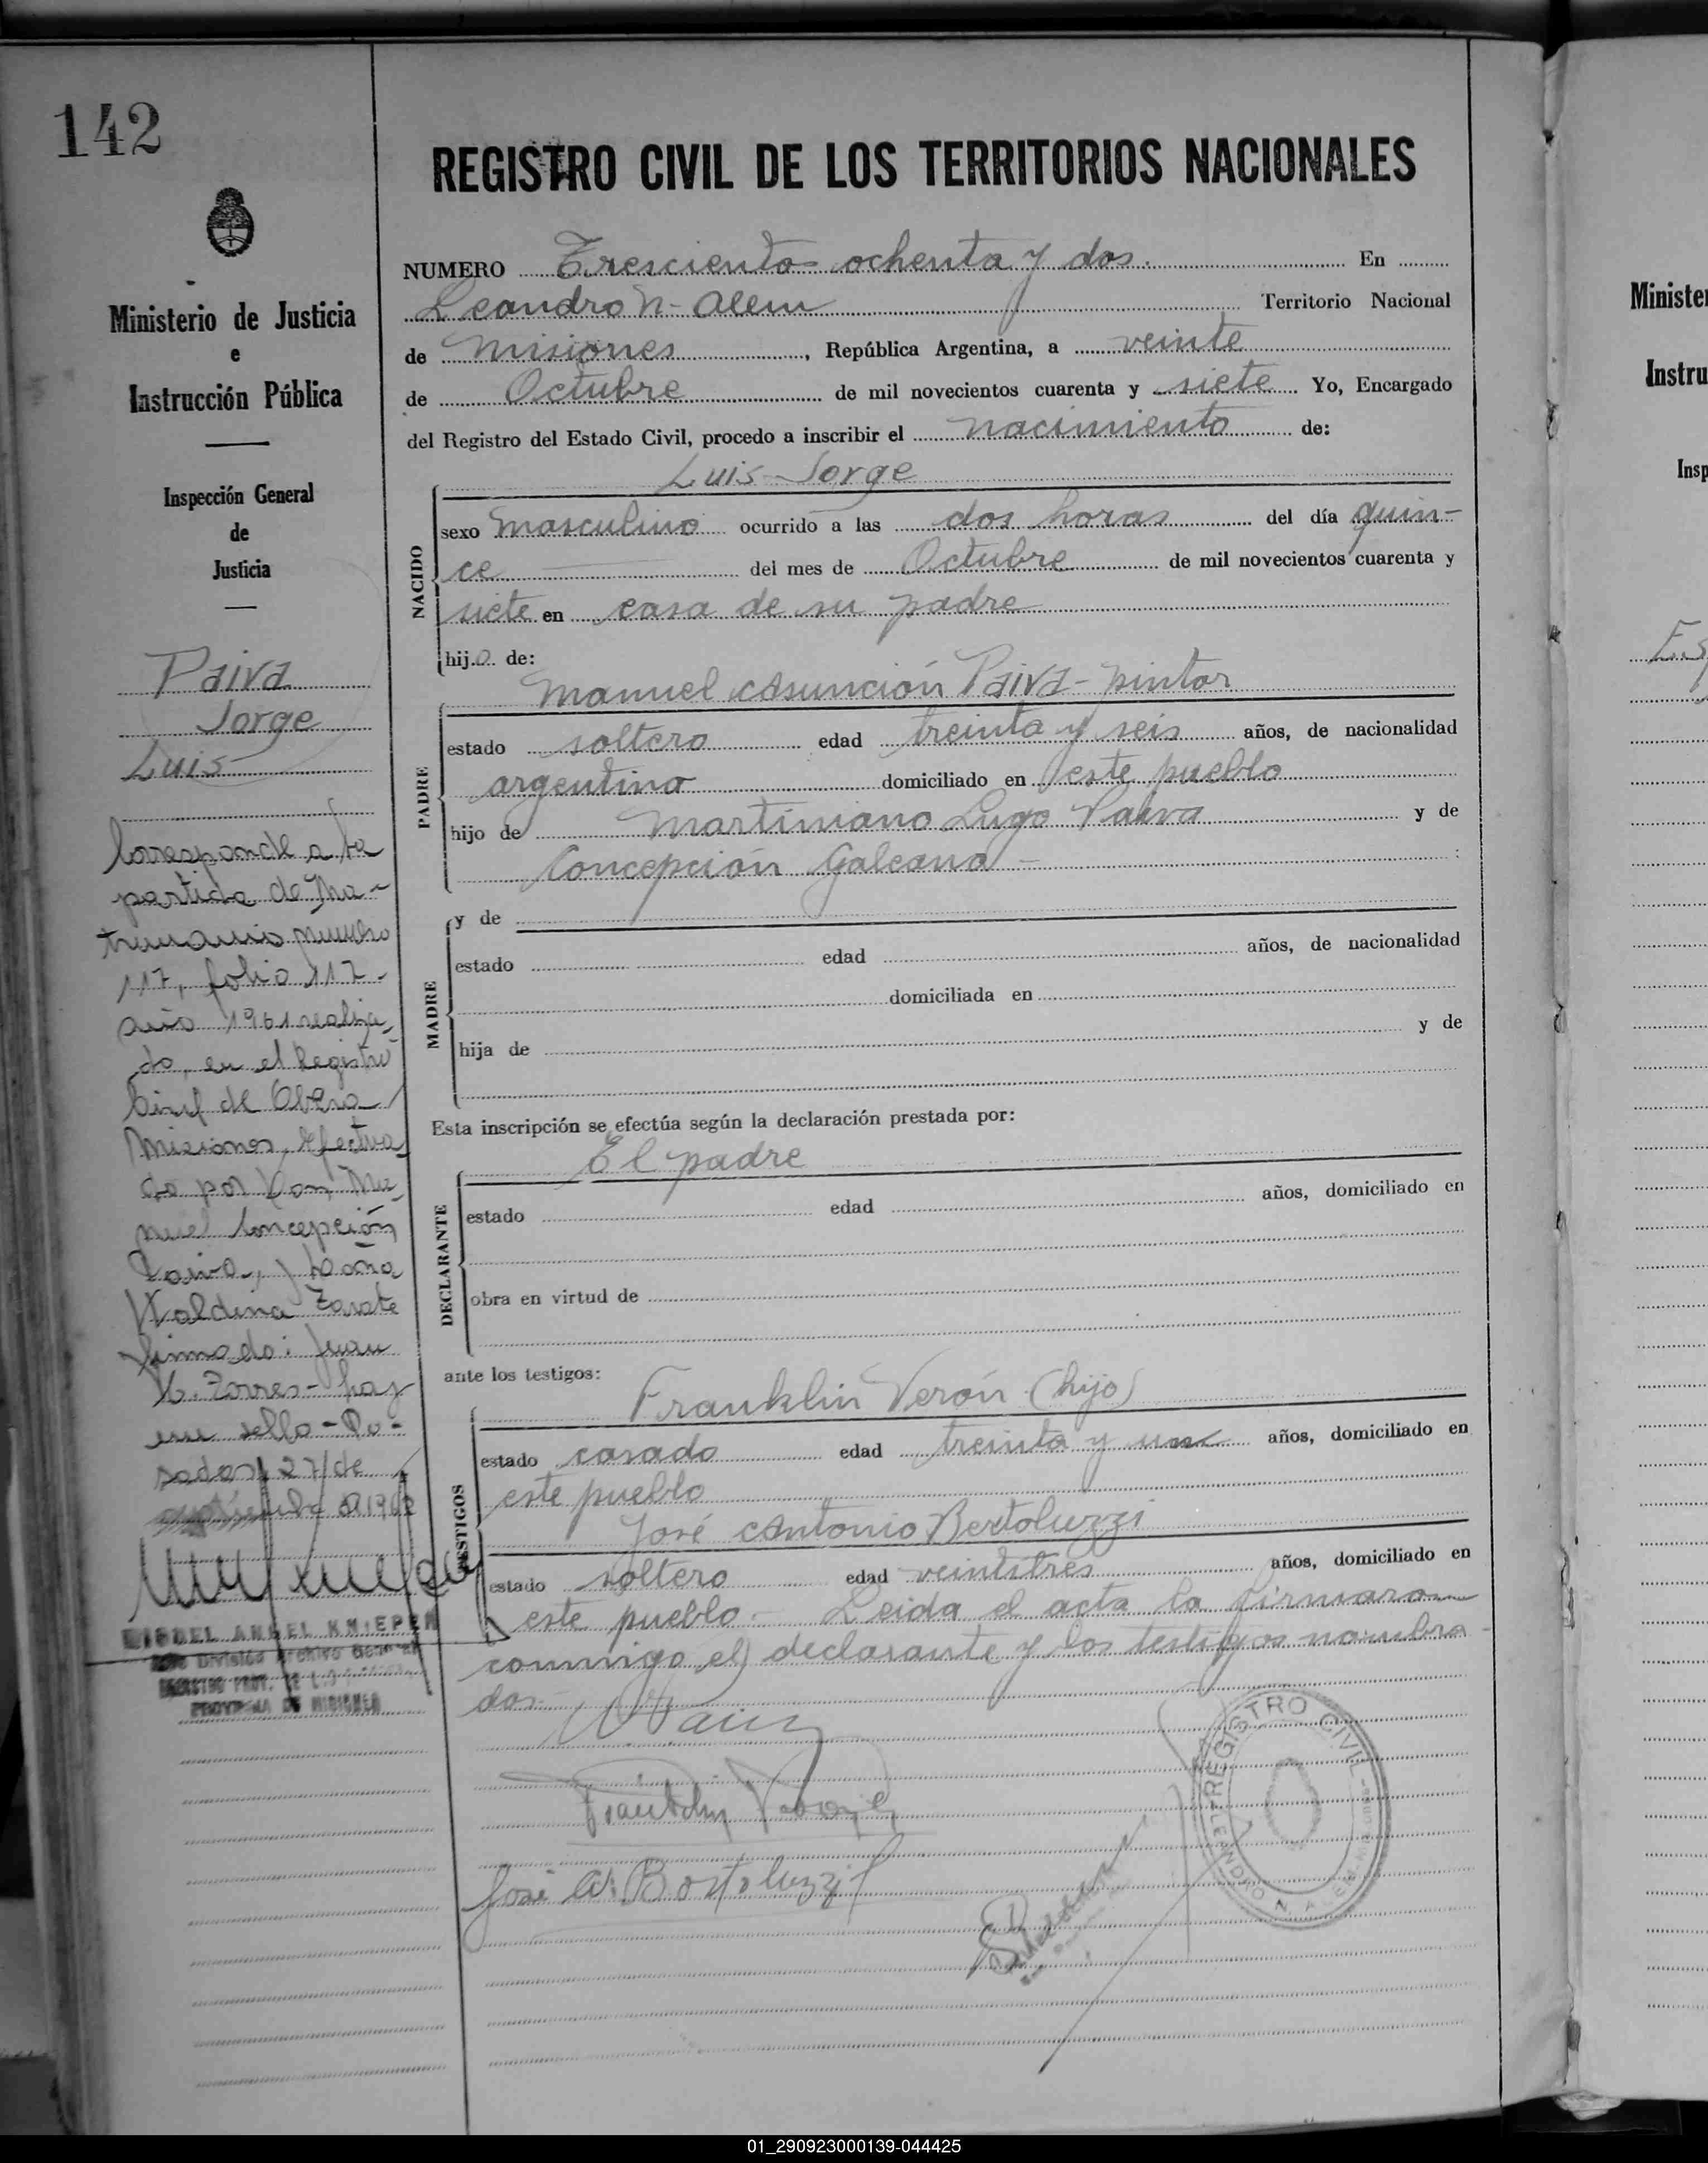 142
Ministerio de Justicia
e
Instrucción Pública
Inspección General
de
Justicia
Paiva
Jorge
Luis
Corresponde a la
partida de Ma-
trimonio numero
117, folio 117-
año 1961 realiza-
do, en el Registro
Civil de Obera
Misiones, efectua-
do por Don, Ma-
nuel Concepción
Paiva, y Doña
Waldina Zarate
firmado: Juan
Torres - hay
un sello - Po-
sadas, 27 de
MIGUEL ANGEL KNIEPER
División Archivo General
PROVINCIA DE MISIONES
REGISTRO CIVIL DE LOS TERRITORIOS NACIONALES
NUMERO Trescientos ochenta y dos. En
Leandro N- Alem Territorio Nacional
de Misiones, República Argentina, a veinte
de Octubre de mil novecientos cuarenta y siete Yo, Encargado
del Registro del Estado Civil, procedo a inscribir el nacimiento de:
Luis Jorge
NACIDO
sexo masculino ocurrido a las dos horas del día quin-
ce del mes de Octubre de mil novecientos cuarenta y
siete en casa de su padre
hijo de:
Manuel Asunción Paiva - pintor
PADRE
estado soltero edad treinta y seis años, de nacionalidad
argentino domiciliado en este pueblo
hijo de Martiniano Lugo Paiva y de
Concepción Galeano -
MADRE
y de
estado edad años, de nacionalidad
domiciliada en
hija de y de
Esta inscripción se efectúa según la declaración prestada por:
El padre
DECLARANTE
estado edad años, domiciliado en
obra en virtud de
ante los testigos:
Franklin Verón (hijo)
TESTIGOS
estado casado edad treinta y un años, domiciliado en
este pueblo
José Antonio Bertoluzzi
estado soltero edad veintitres años, domiciliado en
este pueblo.- Leida el acta la firmaron
conmigo el declarante y los testigos nombra-
dos-
José A. Bortoluzzi
REGISTRO CIVIL
LEANDRO N. ALEM
Ministe
Instru
Insp
01_290923000139-044425